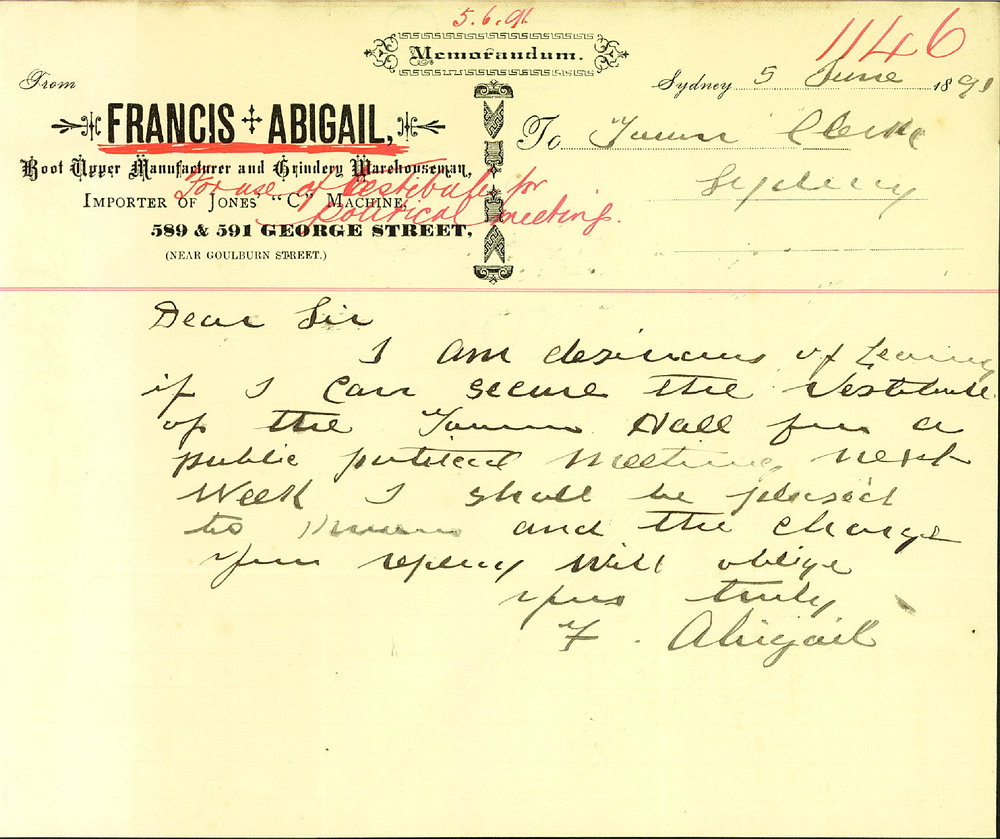 5.6.91
1146
Memorandum.
From
Sydney 5 June 1891
FRANCIS ABIGAIL,
To Town Clerk
Boot Upper Manufacturer and Grindery Warehouseman,
Sydney
For use of Vestibule for
IMPORTER OF JONES "C" MACHINE,
political meeting.
589 & 591 GEORGE STREET,
(NEAR GOULBURN STREET.)
Dear Sir
I am desirous of
if I can secure the Vestibule
of the Town Hall for a
public political meeting next
Week I shall be pleased
to and the charge
your reply will oblige
yours truly
F. Abigail